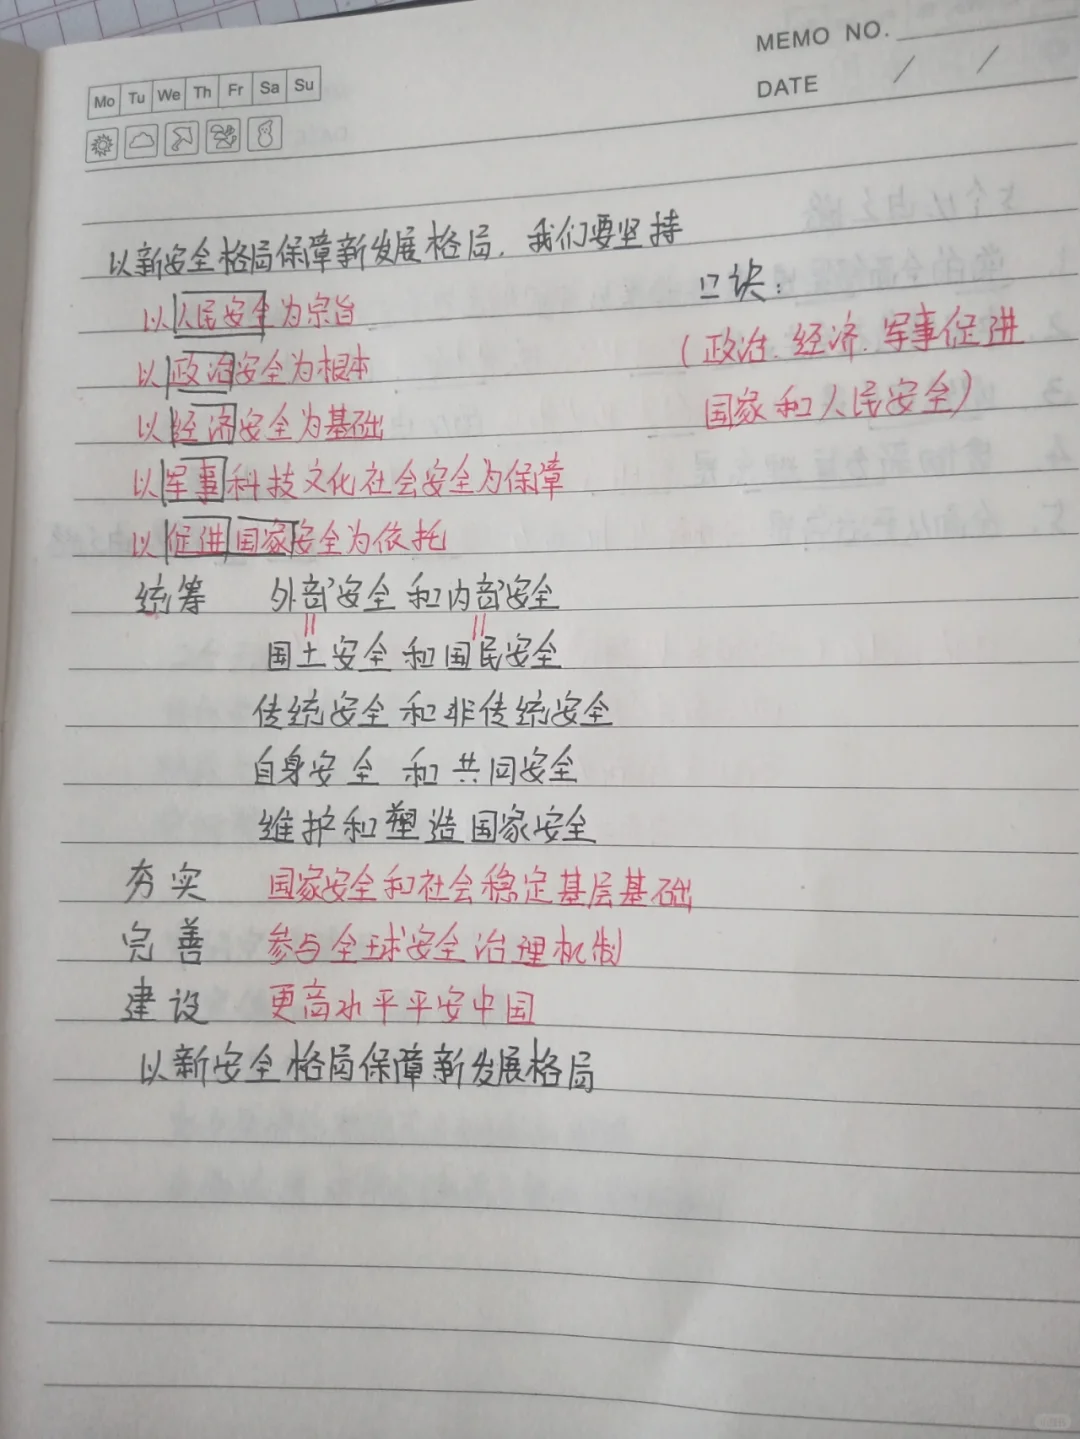 MEMO NO.
Mo Tu We Th Fr Sa Su
DATE / /
以新安全格局保障新发展格局，我们要坚持
以人民安全为宗旨
以政治安全为根本
以经济安全为基础
以军事科技文化社会安全为保障
以促进国家安全为依托
口诀：
(政治、经济、军事促进
国家和人民安全)
统筹 外部安全和内部安全
国土安全和国民安全
传统安全和非传统安全
自身安全和共同安全
维护和塑造国家安全
夯实 国家安全和社会稳定基层基础
完善 参与全球安全治理机制
建设 更高水平平安中国
以新安全格局保障新发展格局